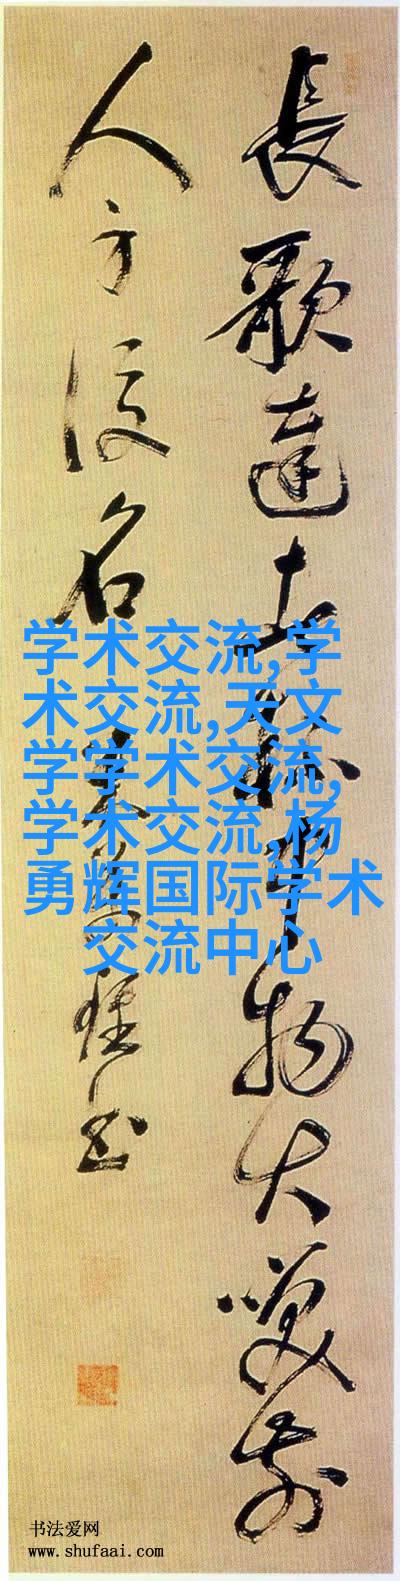 長歌達者杯中物大笑前
人身後名
书
学术交流,学
术交流,天文
学学术交流,
学术交流,杨
勇辉国际学术
交流中心
书法爱网
www.shufaai.com